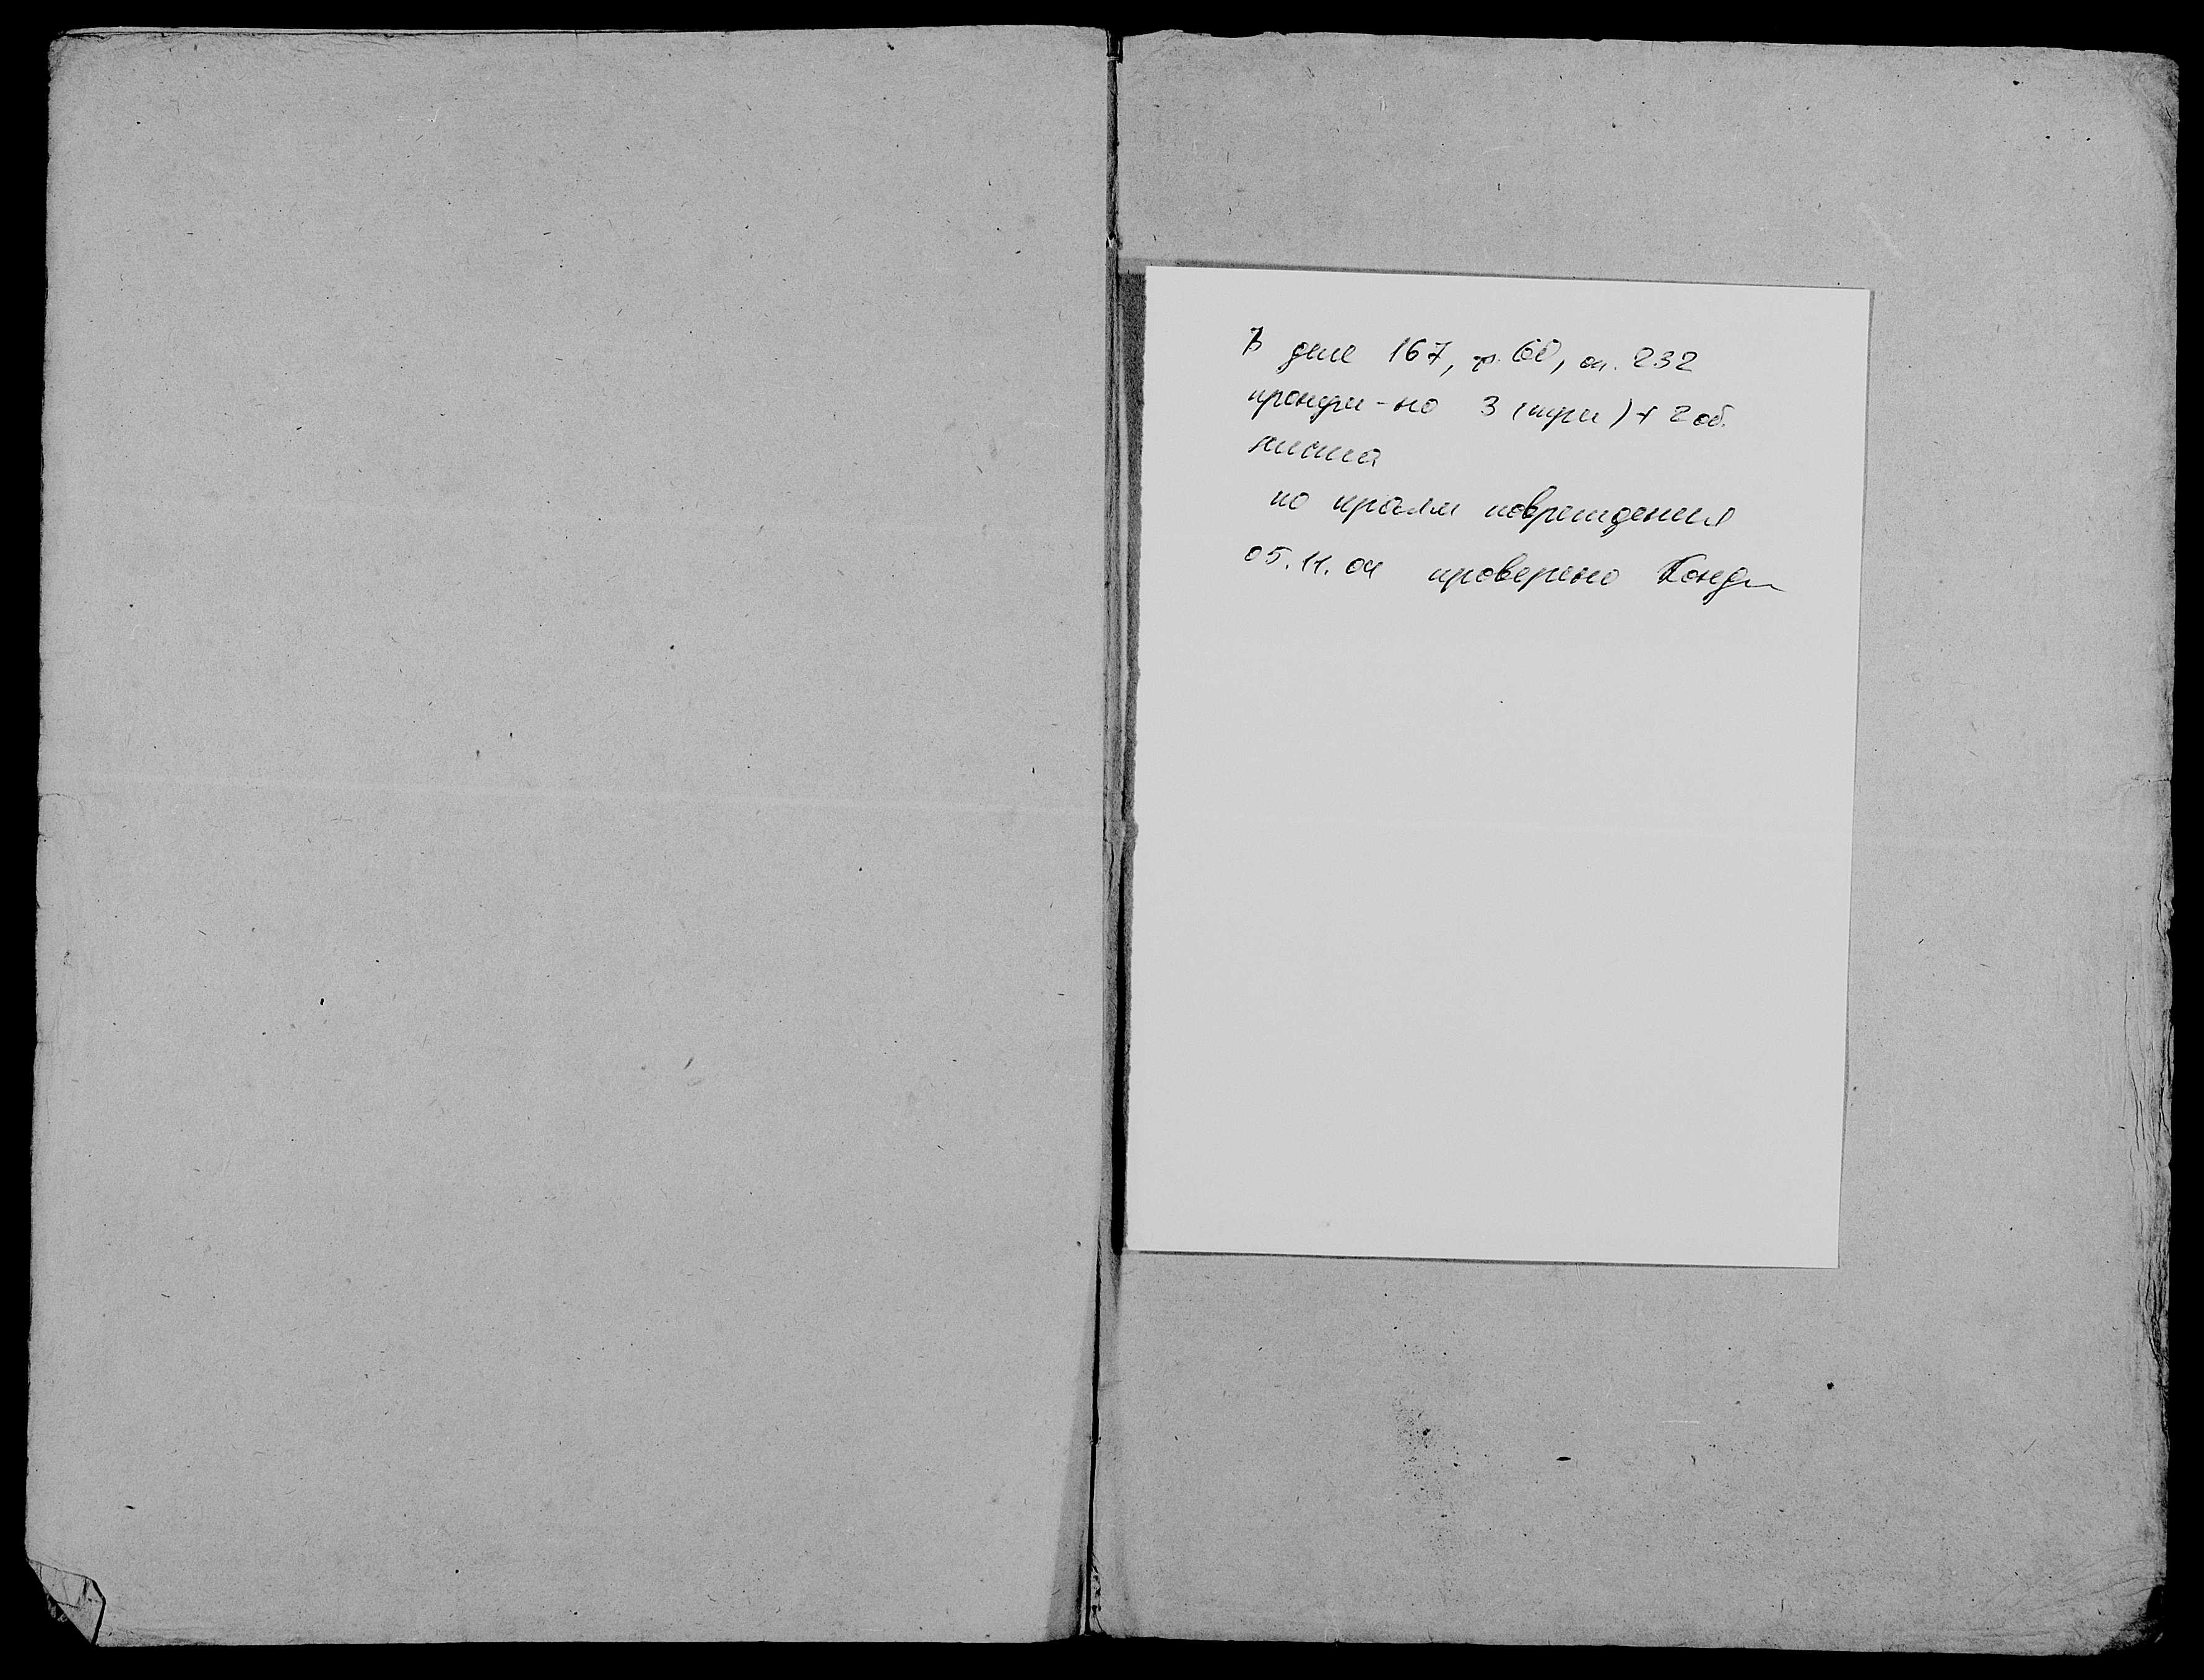 В деле 167, ф. 60, оп. 232
пронум-но 3 (три) + 2 об.
листа
по краям повреждения
05.11.04 проверено